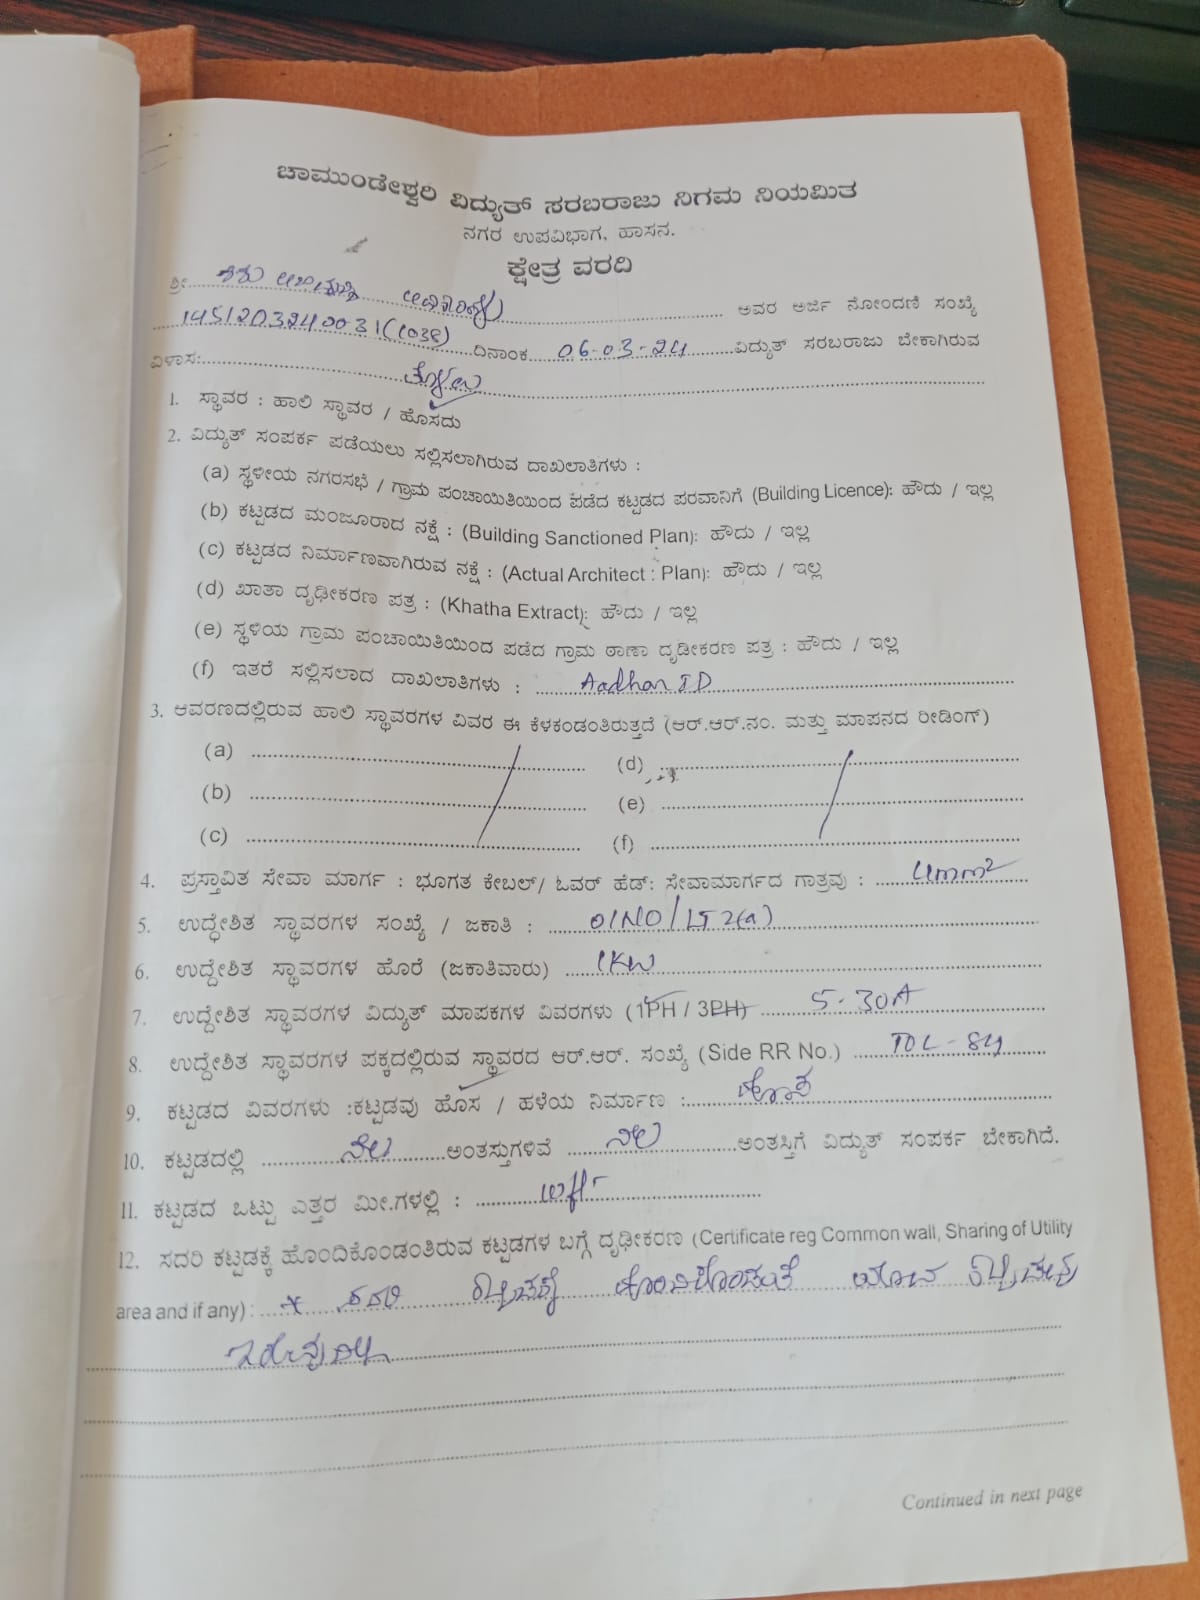 ಚಾಮುಂಡೇಶ್ವರಿ ವಿದ್ಯುತ್ ಸರಬರಾಜು ನಿಗಮ ನಿಯಮಿತ
ನಗರ ಉಪವಿಭಾಗ, ಹಾಸನ.
ಕ್ಷೇತ್ರ ವರದಿ
ಶ್ರೀ ಅವರ ಅರ್ಜಿ ನೋಂದಣಿ ಸಂಖ್ಯೆ
1451203240031(1038) ದಿನಾಂಕ 06-03-24 ವಿದ್ಯುತ್ ಸರಬರಾಜು ಬೇಕಾಗಿರುವ
ವಿಳಾಸ:
1. ಸ್ಥಾವರ : ಹಾಲಿ ಸ್ಥಾವರ / ಹೊಸದು
2. ವಿದ್ಯುತ್ ಸಂಪರ್ಕ ಪಡೆಯಲು ಸಲ್ಲಿಸಲಾಗಿರುವ ದಾಖಲಾತಿಗಳು :
(a) ಸ್ಥಳೀಯ ನಗರಸಭೆ / ಗ್ರಾಮ ಪಂಚಾಯಿತಿಯಿಂದ ಪಡೆದ ಕಟ್ಟಡದ ಪರವಾನಿಗೆ (Building Licence): ಹೌದು / ಇಲ್ಲ
(b) ಕಟ್ಟಡದ ಮಂಜೂರಾದ ನಕ್ಷೆ : (Building Sanctioned Plan): ಹೌದು / ಇಲ್ಲ
(c) ಕಟ್ಟಡದ ನಿರ್ಮಾಣವಾಗಿರುವ ನಕ್ಷೆ : (Actual Architect : Plan): ಹೌದು / ಇಲ್ಲ
(d) ಖಾತಾ ದೃಢೀಕರಣ ಪತ್ರ : (Khatha Extract): ಹೌದು / ಇಲ್ಲ
(e) ಸ್ಥಳಿಯ ಗ್ರಾಮ ಪಂಚಾಯಿತಿಯಿಂದ ಪಡೆದ ಗ್ರಾಮ ಠಾಣಾ ದೃಡೀಕರಣ ಪತ್ರ : ಹೌದು / ಇಲ್ಲ
(f) ಇತರೆ ಸಲ್ಲಿಸಲಾದ ದಾಖಲಾತಿಗಳು : Aadhar ID
3. ಆವರಣದಲ್ಲಿರುವ ಹಾಲಿ ಸ್ಥಾವರಗಳ ವಿವರ ಈ ಕೆಳಕಂಡಂತಿರುತ್ತದೆ (ಆರ್.ಆರ್.ನಂ. ಮತ್ತು ಮಾಪನದ ರೀಡಿಂಗ್)
(a) (d)
(b) (e)
(c) (f)
4. ಪ್ರಸ್ತಾವಿತ ಸೇವಾ ಮಾರ್ಗ : ಭೂಗತ ಕೇಬಲ್/ ಓವರ್ ಹೆಡ್: ಸೇವಾಮಾರ್ಗದ ಗಾತ್ರವು : 4mm²
5. ಉದ್ಧೇಶಿತ ಸ್ಥಾವರಗಳ ಸಂಖ್ಯೆ / ಜಕಾತಿ : 01NO/LT 2(a)
6. ಉದ್ದೇಶಿತ ಸ್ಥಾವರಗಳ ಹೊರೆ (ಜಕಾತಿವಾರು) 1KW
7. ಉದ್ದೇಶಿತ ಸ್ಥಾವರಗಳ ವಿದ್ಯುತ್ ಮಾಪಕಗಳ ವಿವರಗಳು (1PH / 3PH) 5-30A
8. ಉದ್ದೇಶಿತ ಸ್ಥಾವರಗಳ ಪಕ್ಕದಲ್ಲಿರುವ ಸ್ಥಾವರದ ಆರ್.ಆರ್. ಸಂಖ್ಯೆ (Side RR No.) TOL-84
9. ಕಟ್ಟಡದ ವಿವರಗಳು :ಕಟ್ಟಡವು ಹೊಸ / ಹಳೆಯ ನಿರ್ಮಾಣ : ಹೊಸ
10. ಕಟ್ಟಡದಲ್ಲಿ ನೆಲ ಅಂತಸ್ತುಗಳಿವೆ ನೆಲ ಅಂತಸ್ತಿಗೆ ವಿದ್ಯುತ್ ಸಂಪರ್ಕ ಬೇಕಾಗಿದೆ.
11. ಕಟ್ಟಡದ ಒಟ್ಟು ಎತ್ತರ ಮೀ.ಗಳಲ್ಲಿ :
12. ಸದರಿ ಕಟ್ಟಡಕ್ಕೆ ಹೊಂದಿಕೊಂಡಂತಿರುವ ಕಟ್ಟಡಗಳ ಬಗ್ಗೆ ದೃಢೀಕರಣ (Certificate reg Common wall, Sharing of Utility
area and if any) : * ಸದರಿ ಕಟ್ಟಡಕ್ಕೆ ಹೊಂದಿಕೊಂಡಂತೆ ಯಾವ ಕಟ್ಟಡವು
ಇರುವುದಿಲ್ಲ
Continued in next page